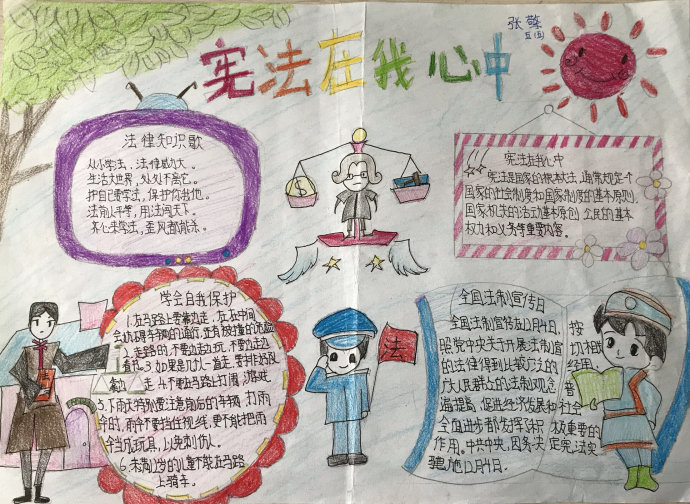 宪法在我心中
张馨
五(四)
法律知识歌
从小学法，法律威力大。
生活大世界，处处不离它。
护自己要学法，保护你和他。
法前人平等，用法闯天下。
齐心来学法，歪风都能杀。
宪法在我心中
宪法是国家的根本法，通常规定一个
国家的社会制度和国家制度的基本原则，
国家机关的活动基本原则，公民的基本
权力和义务等重要内容。
学会自我保护
1.在马路上要靠边走，在
会妨碍车辆的通行，还有被撞的危险
2.走路时，不要边走边玩，不要边走边
看书 3.如果是几人一直走，要排好队
靠边走 4.不要在马路上打闹、游戏
5.下雨天特别要注意前后的车辆，打雨
伞时，雨伞不要挡住视线，更不能把雨
伞当成玩具，以免刺伤人。
6.未满12岁的儿童不能在马路
上骑车。
法
全国法制宣传日
全国法制宣传日12月4日，按
照党中央关于开展法制宣
的法律得到比较广泛的
广大人民群众的法制观念
遍提高，促进经济发展和社会
全面进步都发挥了积极重要的
作用。中共中央、国务决定宪法实
施12月4日。
切相
经用，
普